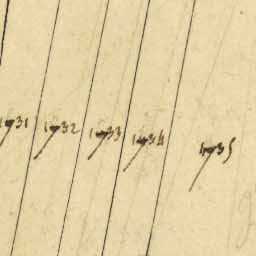 1731 1732 1733 1734 1735